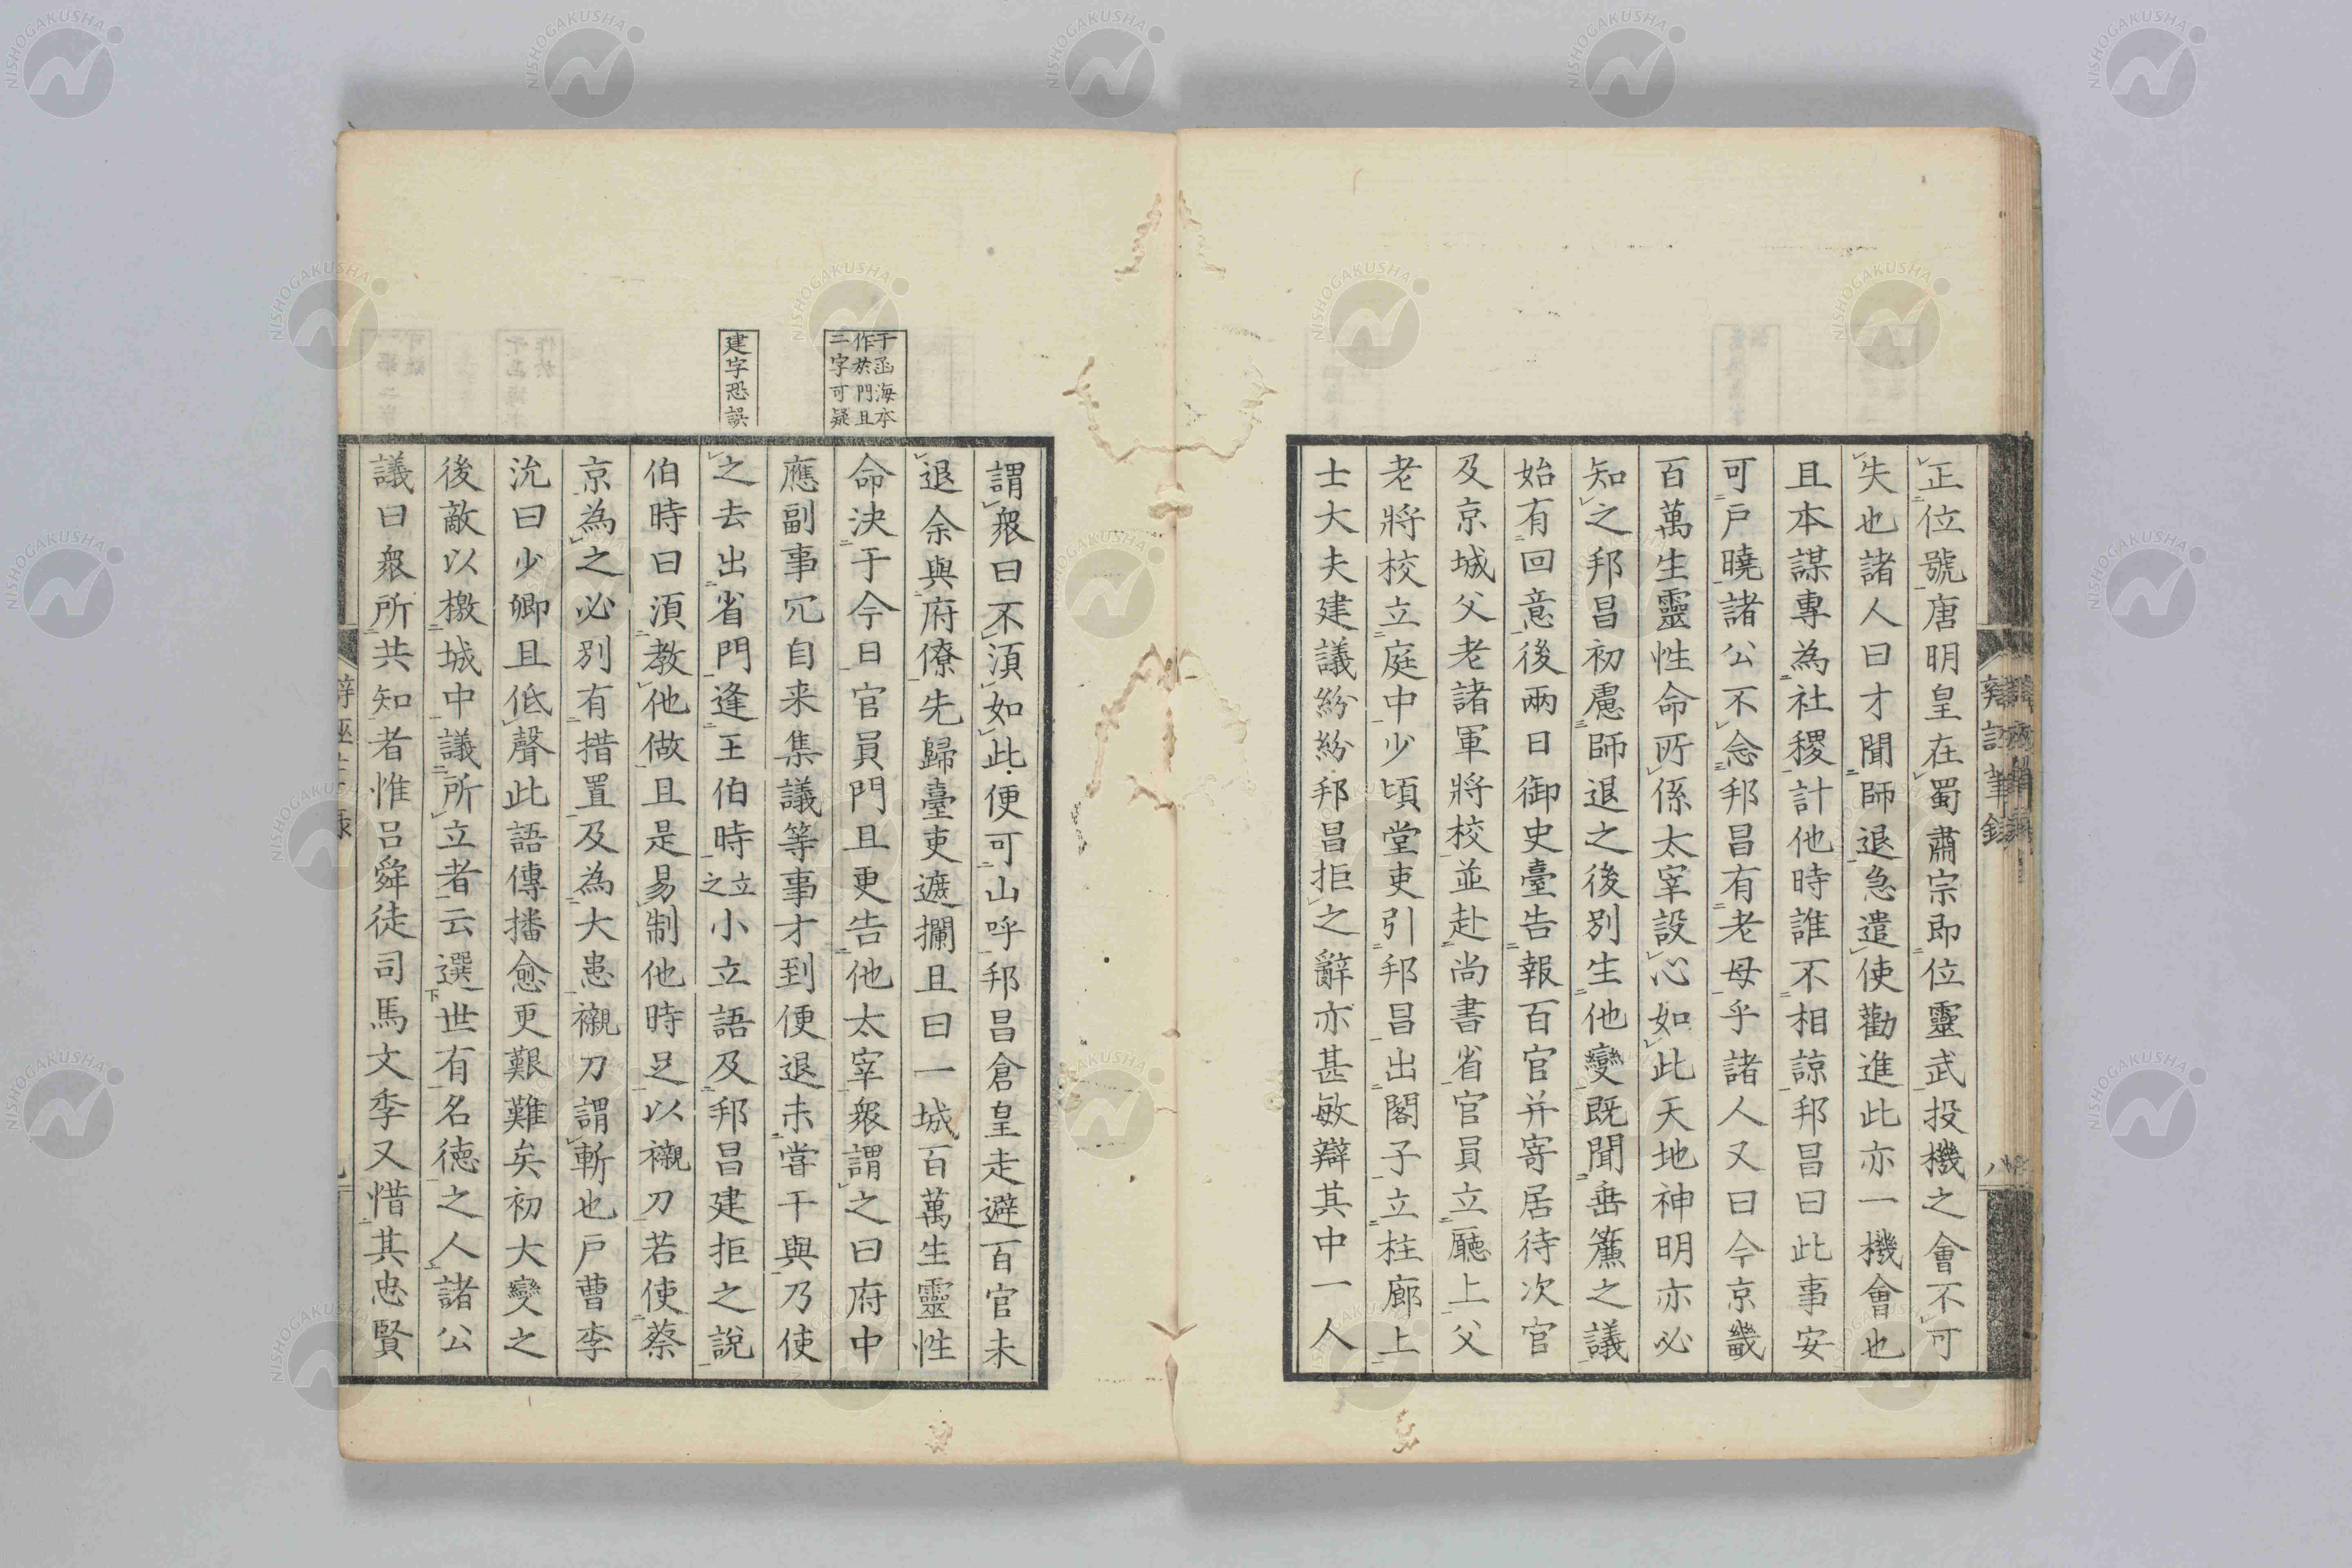 正位號唐明皇在蜀肅宗即位靈武投機之會不可
失也諸人曰才聞師退急遣使勸進此亦一機會也
且本謀專為社稷計他時誰不相諒邦昌曰此事安
可戶曉諸公不念邦昌有老母乎諸人又曰今京畿
百萬生靈性命所係太宰設心如此天地神明亦必
知之邦昌初慮師退之後別生他變既聞垂簾之議
始有回意後兩日御史臺告報百官并寄居待次官
及京城父老諸軍將校並赴尚書省官員立廳上父
老將校立庭中少頃堂吏引邦昌出閣子立柱廊上
士大夫建議紛紛邦昌拒之辭亦甚敏辯其中一人
于函海本
作於門且
二字可疑
建字恐誤
謂衆曰不須如此便可山呼邦昌倉皇走避百官未
退余與府僚先歸臺吏遮攔且曰一城百萬生靈性
命決于今日官員門且更告他太宰衆謂之曰府中
應副事冗自来集議等事才到便退未嘗干與乃使
之去出省門逢王伯時立之小立語及邦昌建拒之說
伯時曰須教他做且是易制他時足以襯刀若使蔡
京為之必別有措置及為大患襯刀謂斬也戶曹李
沇曰少卿且低聲此語傳播愈更艱難矣初大變之
後敵以檄城中議所立者云選世有名德之人諸公
議曰衆所共知者惟呂舜徒司馬文季又惜其忠賢